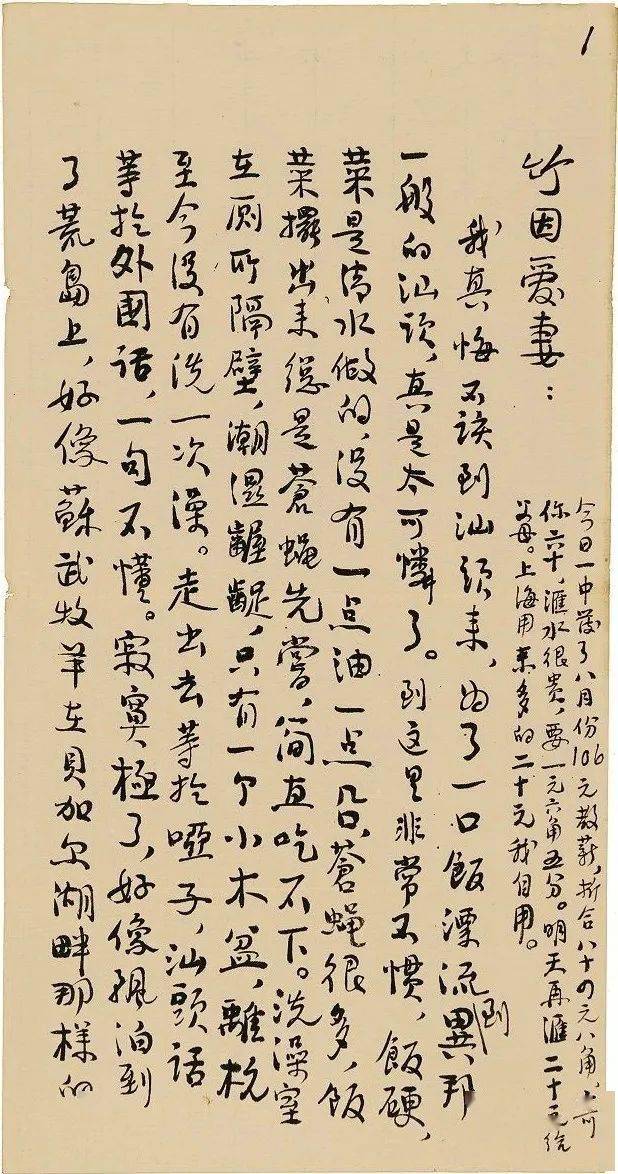 1
竹因爱妻：
今日一中發了八月份106元教薪，折合八十四元八角，上可
你六十，滙水很贵，要一元六角五分。明天再滙二十元给
父母。上海用来多的二十元我自用。
我真悔不该到汕頭来，为了一口飯漂流到異邦
一般的汕頭，真是太可憐了。到这里非常不惯，飯硬，
菜是清水做的，没有一点油一点肉，蒼蝇很多，飯
菜擺出来總是蒼蝇先嘗，简直吃不下。洗澡室
在厕所隔壁，潮濕齷齪，只有一个小木盆，離杭
至今没有洗一次澡。走出去等於啞子，汕頭話
等於外國话，一句不懂。寂寞極了，好像飘泊到
了荒島上，好像蘇武牧羊在貝加尔湖畔那樣的